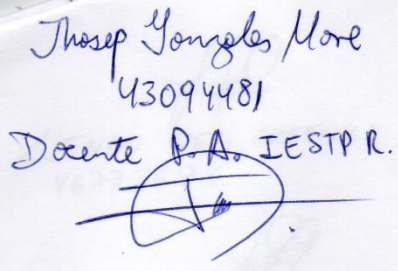 Jhosep Gonzales More
43094481
Docente P.A. IESTP R.